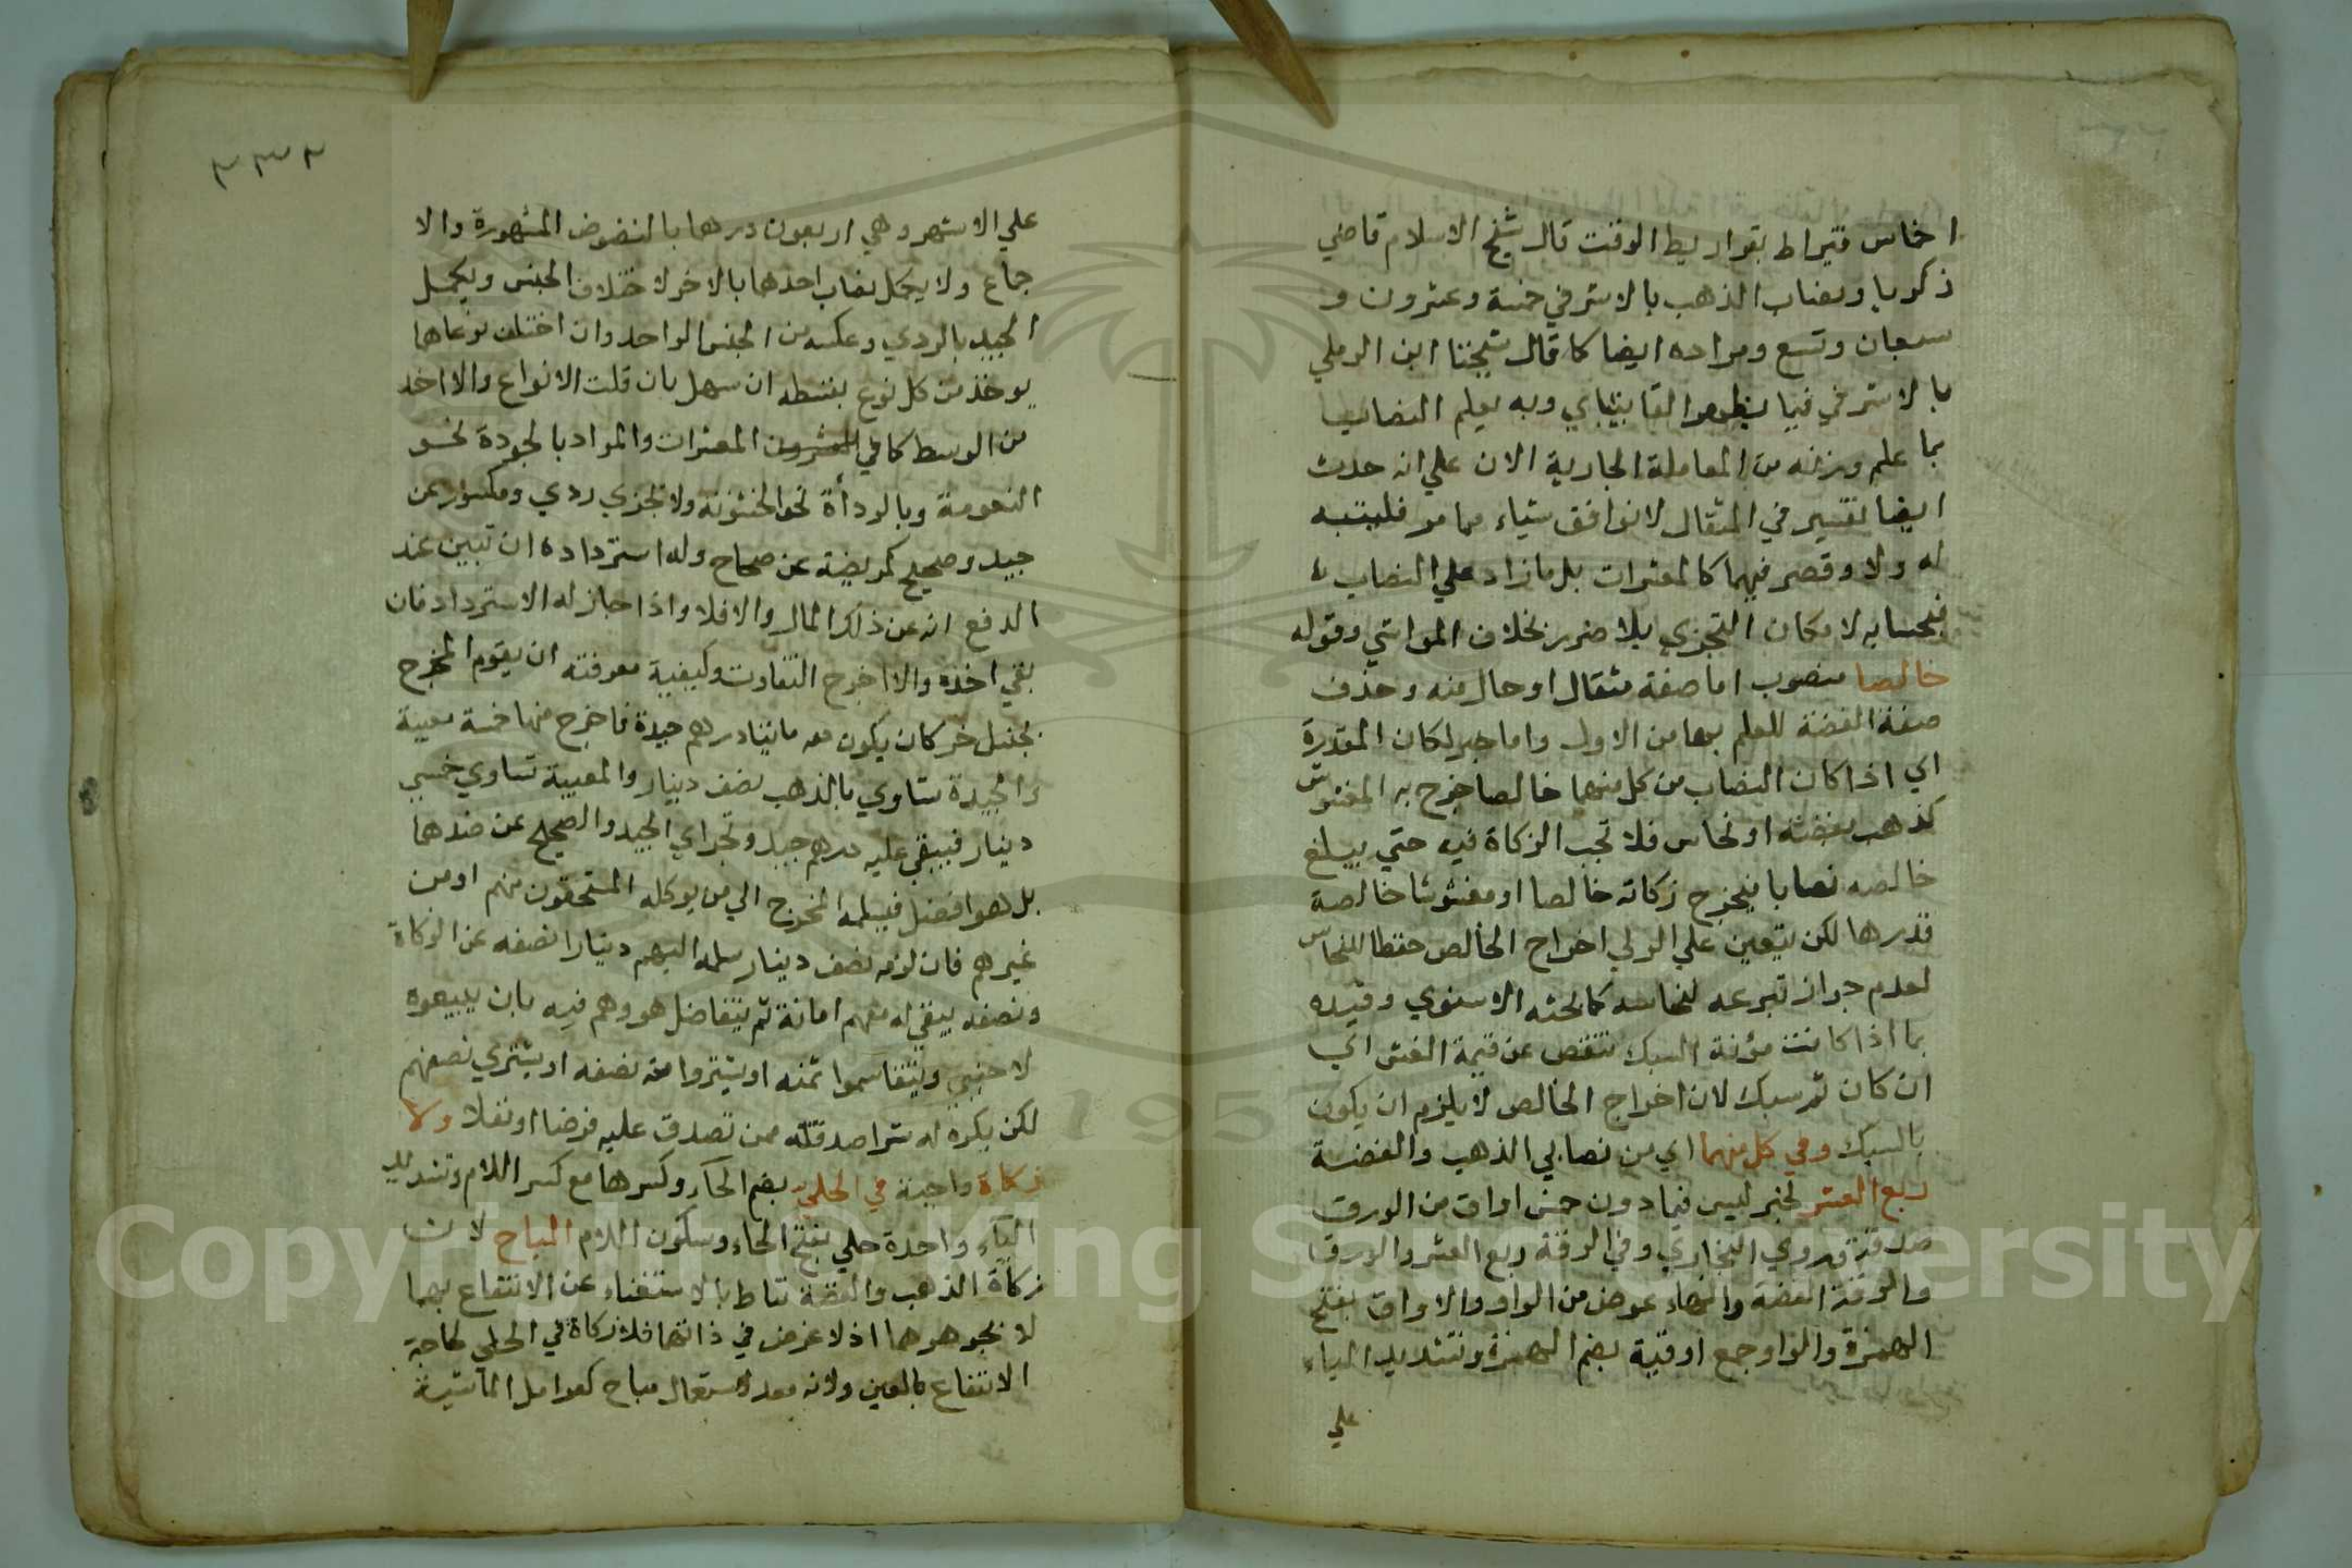 اخماس قيراط بقراريط الوقت قال شيخ الاسلام قاضي
ذكريا ونصاب الذهب بالاشرفي خمسة وعشرون و
سبعان وتسع ومراده ايضا كما قال شيخنا ابن الرملي
بالاشرفي فيما يظهر القايتباي وبه يعلم النصاب
بما علم وزنه من المعاملة الجارية الان علي انه حدث
ايضا تغيير في المثقال لا يوافق شياء مما مر فليتنبه
له ولا وقص فيهما كالمعشرات بل ما زاد علي النصاب
فبحسابه لامكان التجزي بلا ضرر بخلاف المواشي وقوله
خالصا منصوب اما صفة مثقال او حال منه وحذف
صفة الفضة للعلم بها من الاول واما خبر لكان المقدرة
اي اذا كان النصاب من كل منهما خالصا خرج به المغشوش
كذهب بفضة او نحاس فلا تجب الزكاة فيه حتي يبلغ
خالصه نصابا فيخرج زكاته خالصا او مغشوشا خالصة
قدرها لكن يتعين علي الولي اخراج الخالص حفظا للنحاس
لعدم جواز تبرعه بنحاسه كما بحثه الاسنوي وقيده
بما اذا كانت مؤنة السبك تنقص عن قيمة الغش اي
ان كان ثم سبك لان اخراج الخالص لا يلزم ان يكون
بالسبك وفي كل منهما اي من نصابي الذهب والفضة
ربع العشر لخبر ليس فيما دون خمس اواق من الورق
صدقة وروي البخاري وفي الرقة ربع العشر والورق
والرقة الفضة والهاء عوض من الواو والاواق بفتح
الهمزة والواو جمع اوقية بضم الهمزة وتشديد الياء
علي
٣٣٢
علي الاشهر وهي اربعون درهما بالنصوص المشهورة والا
جماع ولا يكمل نصاب احدهما بالاخر لاختلاف الجنس ويكمل
الجيد بالردي وعكسه من الجنس الواحد وان اختلف نوعاهما
يوخذ من كل نوع بقسطه ان سهل بان قلت الانواع والا اخذ
من الوسط كما في المعشرات والمراد بالجودة نحو
النعومة وبالرداءة نحو الخشونة ولا تجزي ردي ومكسور عن
جيد وصحيح كمريضة عن صحاح وله استرداده ان تبين عند
الدفع انه عن ذلك المال والا فلا واذا جاز له الاسترداد فان
بقي اخذه والا اخرج التفاوت وكيفية معرفته ان يقوم المخرج
بجنس اخر كان يكون معه مائتا درهم جيدة فاخرج منها خمسة معيبة
والجيدة تساوي بالذهب نصف دينار والمعيبة تساوي خمسي
دينار فيبقي عليه درهم جيد وتجزاي الجيد والصحيح عن ضدهما
بل هو افضل فيسلمه المخرج الي من يوكله المستحقون منهم او من
غيرهم فان لزمه نصف دينار سلمه اليهم دينارا نصفه عن الزكاة
ونصفه يبقي له معهم امانة ثم يتفاضل هو وهم فيه بان يبيعوه
لاجنبي ويتقاسموا ثمنه او يشتروا منه نصفه او يشتري نصفهم
لكن يكره له شرا صدقته ممن تصدق عليه فرضا او نفلا ولا
زكاة واجبة في الحلي بضم الحاء وكسرها مع كسر اللام وتشديد
الياء واحده حلي بفتح الحاء وسكون اللام المباح لان
زكاة الذهب والفضة تناط بالاستغناء عن الانتفاع بهما
لا بجوهرهما اذ لا غرض في ذاتهما فلا زكاة في الحلي لحاجة
الانتفاع بالعين ولانه معد لاستعمال مباح كعوامل الماشية
Copyright © King Saud University
195